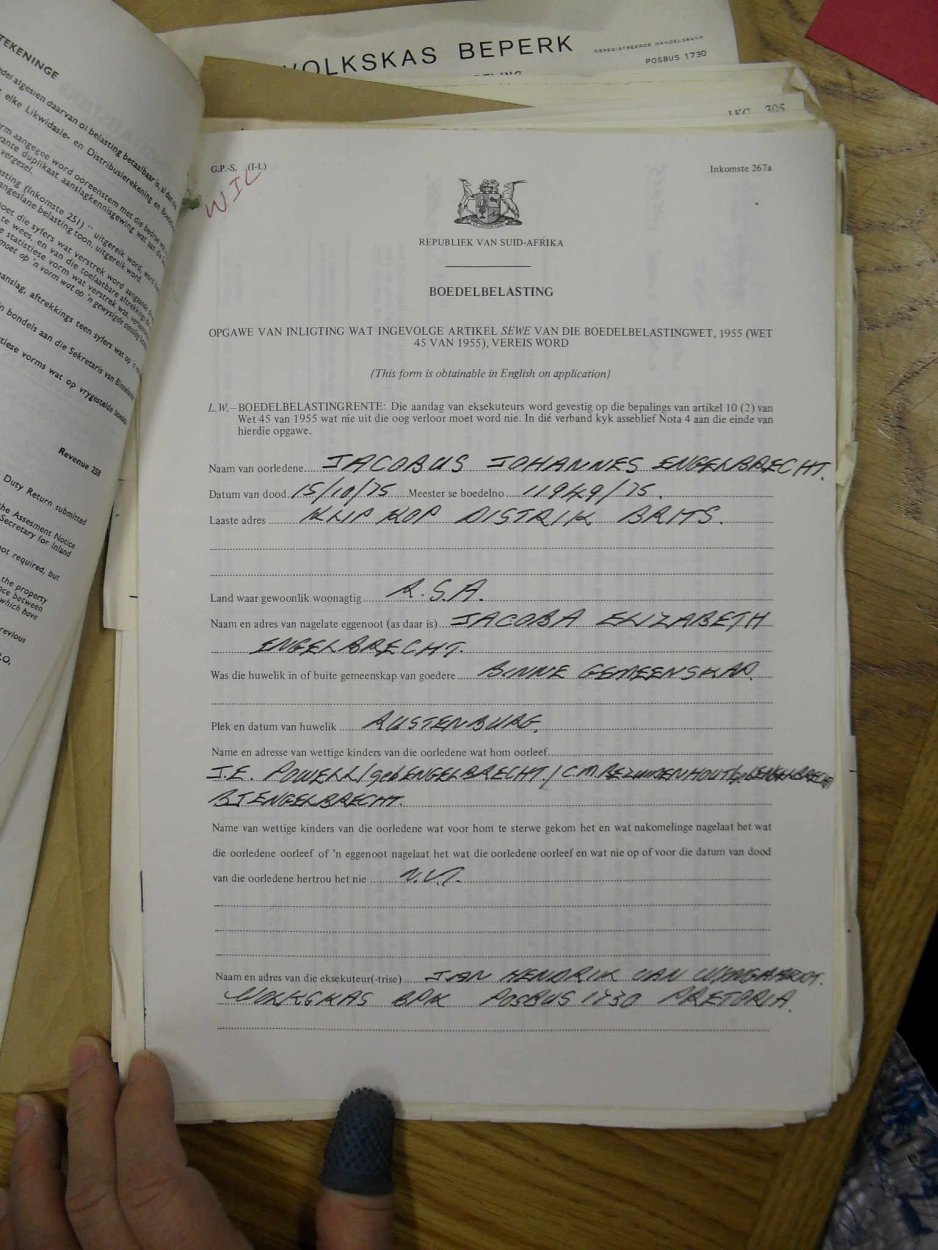 VOLKSKAS BEPERK
POSBUS 1730
TEKENINGE
elke Likwidasie- en Distribusierekening en
vergesel.
Revenue 258
Duty Return submitted
the Assesment Notice
Secretary for Inland
not required, but
the property
between
which have
G.P.-S. (I-L)
Inkomste 267a
REPUBLIEK VAN SUID-AFRIKA
BOEDELBELASTING
OPGAWE VAN INLIGTING WAT INGEVOLGE ARTIKEL SEWE VAN DIE BOEDELBELASTINGWET, 1955 (WET
45 VAN 1955), VEREIS WORD
(This form is obtainable in English on application)
L.W.– BOEDELBELASTINGRENTE: Die aandag van eksekuteurs word gevestig op die bepalings van artikel 10 (2) van
Wet 45 van 1955 wat nie uit die oog verloor moet word nie. In dié verband kyk asseblief Nota 4 aan die einde van
hierdie opgawe.
Naam van oorledene JACOBUS JOHANNES ENGELBRECHT.
Datum van dood 15/10/75 Meester se boedelno 11949/75.
Laaste adres KLIPKOP DISTRIK BRITS.
Land waar gewoonlik woonagtig R.S.A.
Naam en adres van nagelate eggenoot (as daar is) JACOBA ELIZABETH
ENGELBRECHT.
Was die huwelik in of buite gemeenskap van goedere BINNE GEMEENSKAP.
Plek en datum van huwelik RUSTENBURG.
Name en adresse van wettige kinders van die oorledene wat hom oorleef
J.E. POWELL/geb ENGELBRECHT/C.M. BEZUIDENHOUT geb ENGELBRECHT
BJ ENGELBRECHT
Name van wettige kinders van die oorledene wat voor hom te sterwe gekom het en wat nakomelinge nagelaat het wat
die oorledene oorleef of 'n eggenoot nagelaat het wat die oorledene oorleef en wat nie op of voor die datum van dood
van die oorledene hertrou het nie N.V.T.
Naam en adres van die eksekuteur(-trise) JAN HENDRIK VAN WYNGAARDT.
VOLKSKAS BPK POSBUS 1730 PRETORIA.